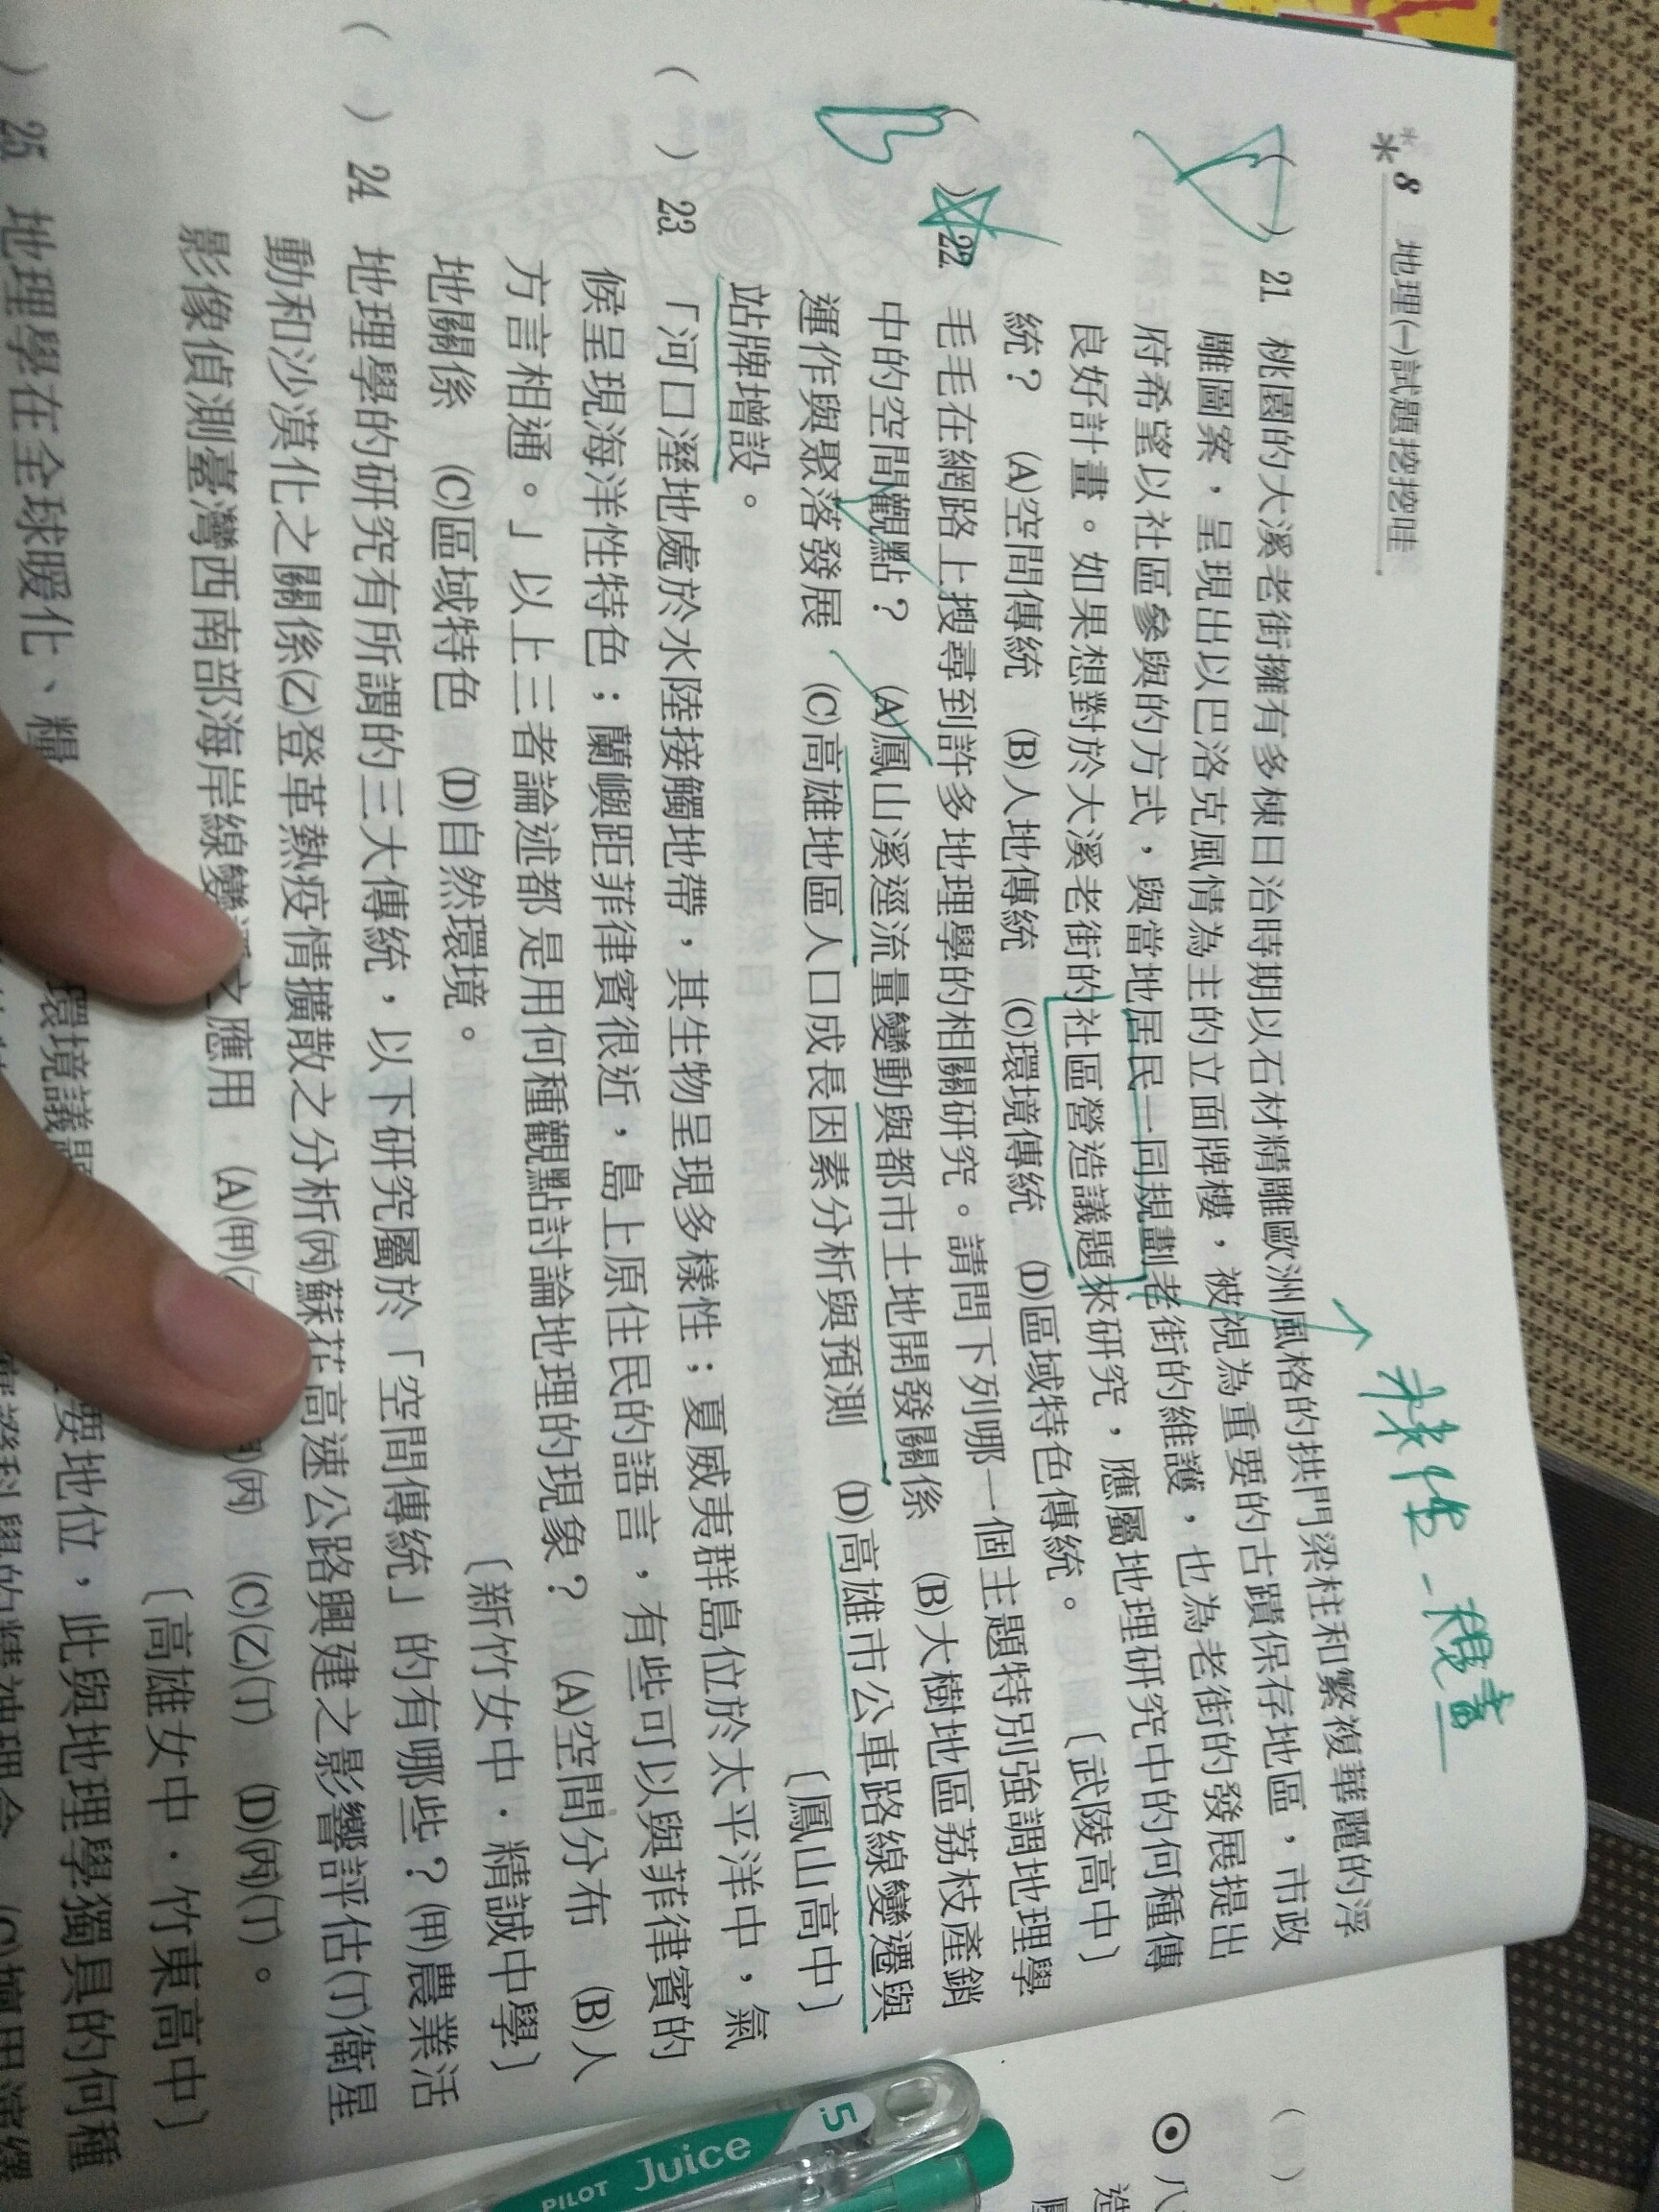 8 地理(一)試題挖挖哇
( ) 21 桃園的大溪老街擁有多棟日治時期以石材精雕歐洲風格的拱門梁柱和繁複華麗的浮
雕圖案，呈現出以巴洛克風情為主的立面牌樓，被視為重要的古蹟保存地區，市政
府希望以社區參與的方式，與當地居民一同規劃老街的維護，也為老街的發展提出
良好計畫。如果想對於大溪老街的社區營造議題來研究，應屬地理研究中的何種傳
統？ (A)空間傳統 (B)人地傳統 (C)環境傳統 (D)區域特色傳統。 〔武陵高中〕
( ) 22 毛毛在網路上搜尋到許多地理學的相關研究。請問下列哪一個主題特別強調地理學
中的空間觀點？ (A)鳳山溪逕流量變動與都市土地開發關係 (B)大樹地區荔枝產銷
運作與聚落發展 (C)高雄地區人口成長因素分析與預測 (D)高雄市公車路線變遷與
站牌增設。 〔鳳山高中〕
( ) 23 「河口溼地處於水陸接觸地帶，其生物呈現多樣性；夏威夷群島位於太平洋中，氣
候呈現海洋性特色；蘭嶼距菲律賓很近，島上原住民的語言，有些可以與菲律賓的
方言相通。」以上三者論述都是用何種觀點討論地理的現象？ (A)空間分布 (B)人
地關係 (C)區域特色 (D)自然環境。 〔新竹女中．精誠中學〕
( ) 24 地理學的研究有所謂的三大傳統，以下研究屬於「空間傳統」的有哪些？(甲)農業活
動和沙漠化之關係(乙)登革熱疫情擴散之分析(丙)蘇花高速公路興建之影響評估(丁)衛星
影像偵測臺灣西南部海岸線變之應用 (A)(甲) (丙) (C)(乙)(丁) (D)(丙)(丁)。
〔高雄女中．竹東高中〕
) 25 地理學在全球暖化、糧 環境議 要地位，此與地理學獨具的何種
PILOT Juice .5